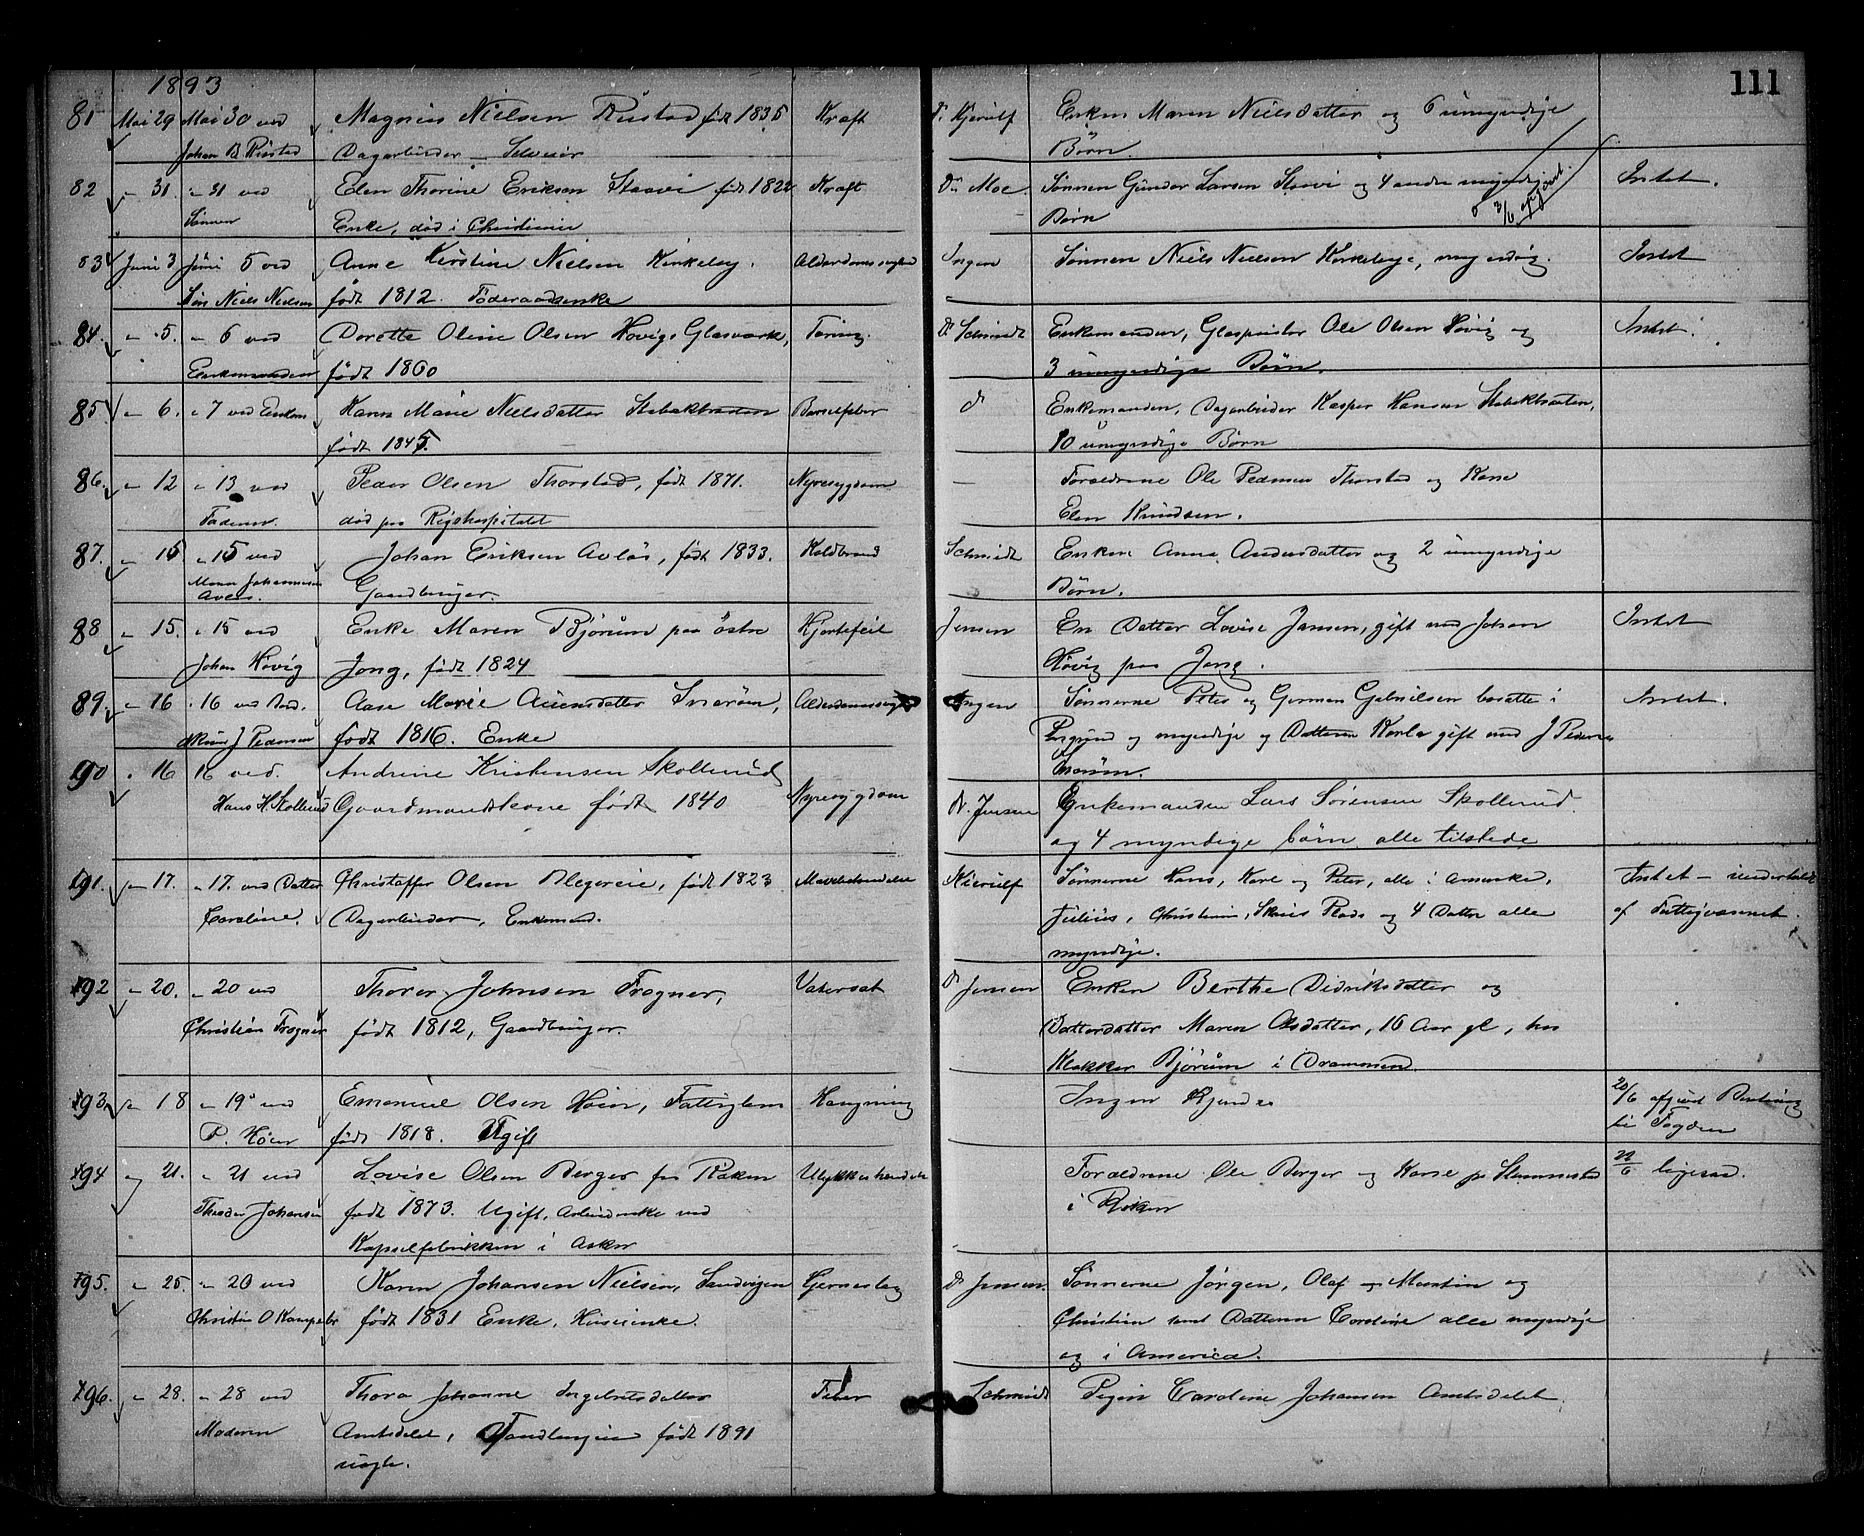 1893
111
81 Mai 29 Mai 30 ved Magnus Nielsen Rustad født 1835 Kraft Dr. Kjerulf Enken Maren Nielsdatter og 6 umyndige
Johan B Rustad Dagarbeider Børn.
82 " 31 " 31 ved Elen Thorine Eriksen Staavi født 1822 Kraft Dr. Moe Sønnen Gunder Larsen Staavi og 4 andre myndige Intet.
Sønnen Enke, død i Christiania Børn
83 Juni 3 Juni 5 ved Anne Kirstine Nielsen Kirkeby. Alderdomssvaghed Ingen Sønnen Niels Nielsen Kirkeby, myndig. Intet
Søn Niels Nielsen født 1812. Føderaadsenke
84. " 5. " 6 ved Dorette Oline Olsen Høvigs Glasværk, Tæring. Dr Schmidt Enkemanden, Glaspuster Ole Olsen Høvig og Intet.
Enkemanden født 1860 3 umyndige Børn.
85. " 6. " 7 ved Enkem Karen Marie Nielsdatter Stabækbraaten Barselfeber d Enkemanden, Dagarbeider Kasper Hansen Stabækbraaten,
født 1845. 10 umyndige Børn
86. " 12 " 13 ved Peder Olsen Thorstad, født 1871. Nyresygdom — Forældrene Ole Pedersen Thorstad og Kone
Faderen. død paa Rigshospitalet Elen Knudsen.
87. " 15. " 15 ved Johan Eriksen Avløs, født 1833. Koldbrand Schmidt Enken Anne Andersdatter og 2 umyndige
Johannesen
Gaardbruger. Børn.
88 " 15. " 15 ved Enke Maren Bjørum paa østre Hjertefeil Jensen En Datter Lovise Jansen, gift med Johan Intet
Johan Høvig Jong, født 1824 Høvig paa Jong.
89. " 16 " 16 ved Aase Marie Auensdatter Snarøen, Alderdomssvagh Ingen Sønnerne Peter og Herman Gabrielsen bosatte i Intet.
J Pedersen født 1816. Enke og myndige og Datteren Karla gift med J Pedersen
Snarøen.
90 " 16 16 ved. Andrine Kristensen Skollerud Nyresygdom Dr. Jensen Enkemanden Lars Sørensen Skollerud
Hans H. Skollerud Gaardmandskone født 1840 og 4 myndige børn alle tilstede
91. " 17. " 17. ved Datter Christoffer Olsen Blegereie, født 1823 Kierulf Sønnerne Hans, Karl og Peter, alle i Amerika, Intet – underholdt
Caroline. Dagarbeider, Enkemand. Julius, Christian, Skuis Plads og 4 Døttre alle af Fattigvæsenet.
myndige.
92 " 20. " 20 ved Thorer Johnsen Frogner, Vatersot Dr Jensen Enken Berthe Didriksdatter og
Christian Frogner født 1812, Gaardbruger. Datterdatter Maren Olsdatter, 16 Aar gl, hos
Klokker Bjørum i Drammen
93. " 18 " 19 ved Emanuel Olsen Høin, Fattiglem Hængning Ingen Kjendte 20/6 afgivet Beretning
P. Høen født 1818. Ugift til Fogden
94 " 21. " 21 ved Lovise Olsen Berger fra Røken Ulykkeshændelse Forældrene Ole Berger og Kone paa Slemmestad 22/6 ligesaa.
Johansen født 1873. Ugift. Arbeiderske ved i Røken
Kapselfabrikken i Asker
95. " 25. " 20 ved Karen Johansen Nielsen, Sandvigen Hjerneslag Dr Jensen. Sønnerne Jørgen, Olaf og Martin og
Christian O Kampebr født 1831 Enke. Huseierske. Christian samt Datteren Caroline alle myndige
og i America.
96. " 28. " 28 ved Thora Johanne Ingebretsdatter Feber Schmidt Pigen Caroline Johansen Amtsdelet.
Moderen Amtsdelet, født 1891
uægte.